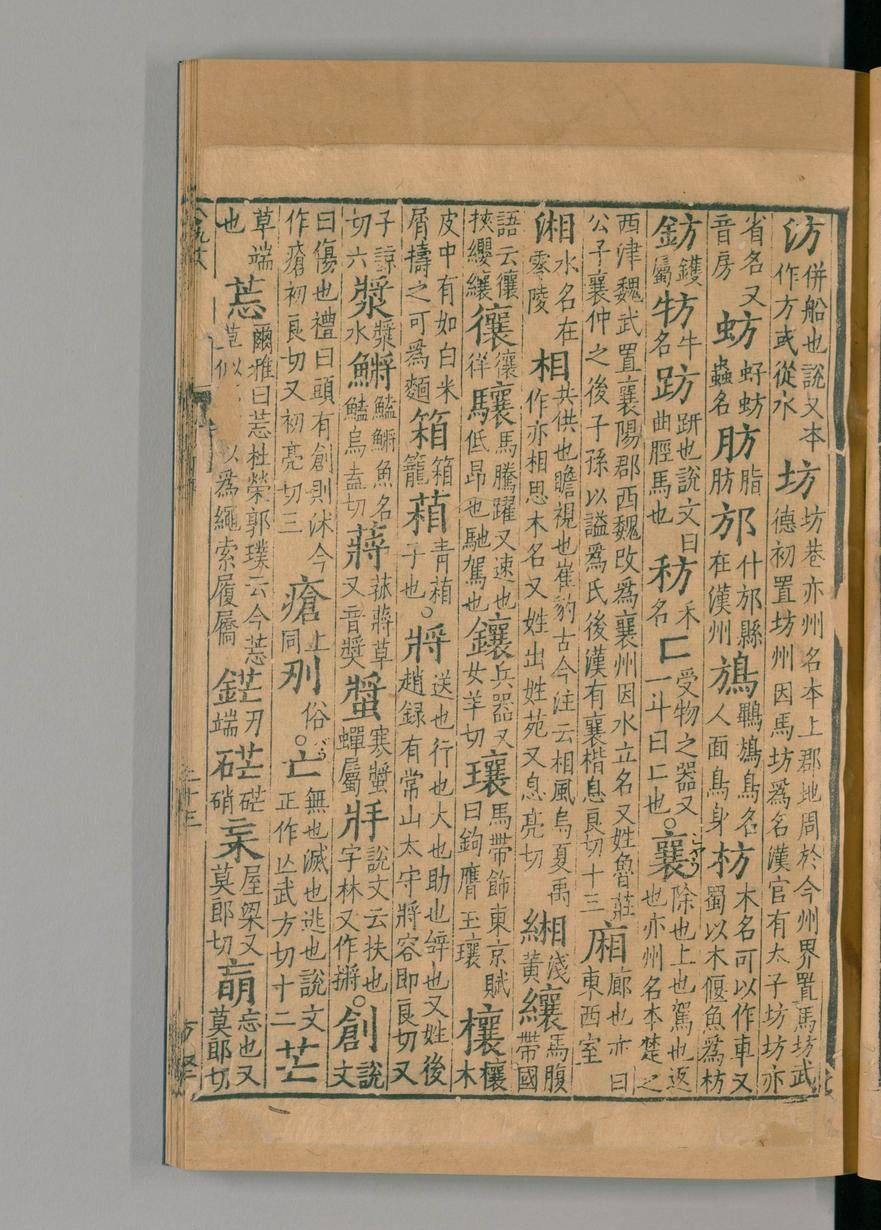 汸併船也說又本作方或從水坊坊巷亦州名本上郡地周於今州界置馬坊武德初置坊州因馬坊爲名漢官有太子坊坊亦
省名又音房蚄虸蚄蟲名肪脂肪邡什邡縣在漢州鴋鴋鳥名人面鳥身枋木名可以作車又蜀以木偃魚爲枋
鈁鑊屬牥牛名趽趼也說文曰曲脛馬也䄱禾名匚受物之器又一斗曰匚也。襄除也上也駕也返也亦州名本楚之
西津魏武置襄陽郡西魏改爲襄州因水立名又姓魯莊公子襄仲之後子孫以謚爲氏後漢有襄楷息良切十三廂廊也亦曰東西室
湘水名在零陵相共供也瞻視也崔豹古今注云相風烏夏禹作亦相思木名又姓出姓苑又息亮切緗淺黃纕馬腹帶國
語云忀挾纓纕忀忀徉驤馬騰躍又速也低昂也馳駕也鑲兵器又女羊切瓖馬帶飾東京賦曰鉤膺玉瓖欀欀木
皮中有如白米屑擣之可爲麵箱箱籠葙青葙子也。將送也行也大也助也辝也又姓後趙録有常山太守將容即良切又
子諒切六漿漿水鱂䲙鱂魚名䲙烏盍切蔣菰蔣草又音獎螿寒螿蟬屬說文云扶也字林又作摪。創說文
曰傷也禮曰頭有創則沐今作瘡初良切又初亮切三瘡上同刅俗。亡無也滅也逃也說文正作亾武方切十二芒
草端也莣爾雅曰莣杜榮郭璞云今莣草似以爲繩索履屩鋩刃端硭硭硝杗屋梁又莫郎切朚忘也又莫郎切